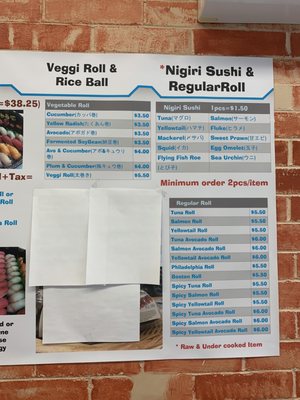 =$38.25)
+Tax=
Veggi Roll &
Rice Ball
Vegetable Roll
Cucumber(カッパ巻) $3.50
Yellow Radish(たくあん巻) $3.50
Avocado(アボガド巻) $3.50
Fermented SoyBean(納豆巻) $3.50
Avo & Cucumber(アボ&キュウリ巻) $4.00
Plum & Cucumber(梅キュウ巻) $4.00
Veggi Roll(太巻き) $5.50
*Nigiri Sushi &
RegularRoll
Nigiri Sushi 1pcs=$1.50
Tuna(マグロ) Salmon(サーモン)
Yellowtail(ハマチ) Fluke(ヒラメ)
Mackerel(〆サバ) Sweet Prawn(甘エビ)
Squid(イカ) Egg Omelet(玉子)
Flying Fish Roe Sea Urchin(ウニ)
(とび子)
Minimum order 2pcs/item
Regular Roll
Tuna Roll $5.50
Salmon Roll $5.50
Yellowtail Roll $5.50
Tuna Avocado Roll $6.00
Salmon Avocado Roll $6.00
Yellowtail Avocado Roll $6.00
Philadelphia Roll $5.50
Boston Roll $5.50
Spicy Tuna Roll $5.50
Spicy Salmon Roll $5.50
Spicy Yellowtail Roll $5.50
Spicy Tuna Avocado Roll $6.00
Spicy Salmon Avocado Roll $6.00
Spicy Yellowtail Avocado Roll $6.00
* Raw & Under cooked Item